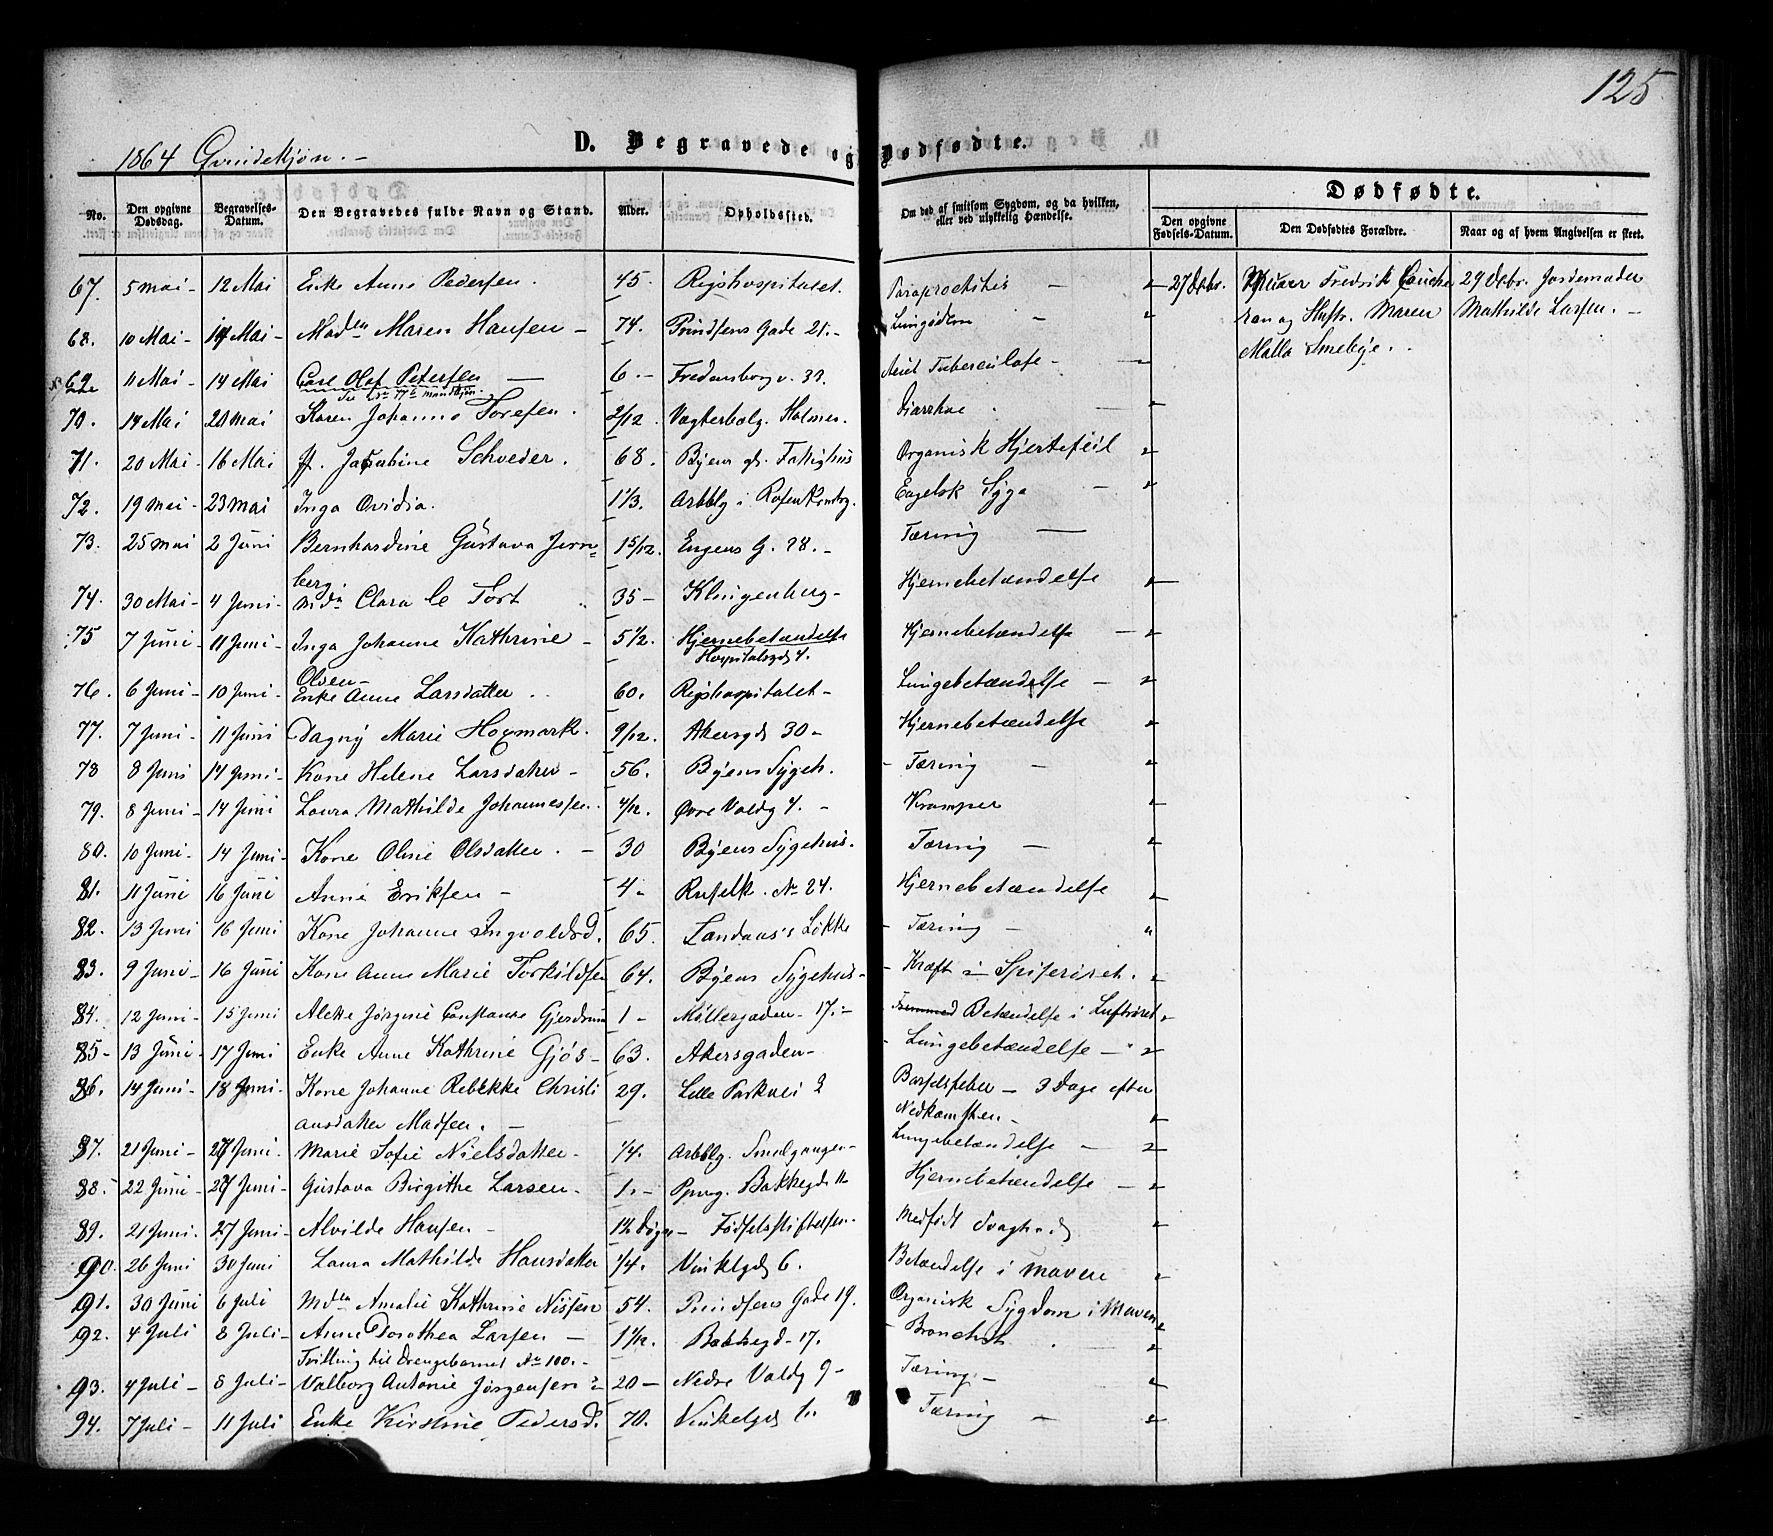 125
1864 Qvindekjøn. -
D. Begravede og Dødfødte.
No. Den opgivne Dødsdag. Begravelses-Datum. Den Begravedes fulde Navn og Stand. Alder. Opholdssted. Om død af smitsom Sygdom, og da hvilken, eller ved ulykkelig Hændelse. Dødfødte. Den opgivne Fødsels-Datum. Den Dødfødtes Forældre. Naar og af hvem Angivelsen er skeet.
67. 5 Mai - 12 Mai Enke Anne Pedersen 45. Rigshospitalet. Paraproctitis - 27 Debr. Fredrik 29 Debr. Jordemoder
68. 10 Mai - 14 Mai - Maden Maren Hansen - 74. Prindsens Gade 21. - Lungødem - og Hustr. Maren Mathilde Larsen. -
Malla Smebye.
69 11 Mai - 14 Mai Carl Olaf Petersen 6. - Fredensborgv. 32. Acut Tuberculose -
70. 14 Mai 20 Mai Karen Johanne Toresen. 2/12. Vagterbolg. Holmen. Diarrhoe
71. 20 Mai - 16 Mai Jf. Jacobine Schveder. 68. Byens gl. Fattighus Organisk Hjertefeil
72. 19 Mai - 23 Mai Inga Ovidia. 1 1/3. Arbblg i Rosenkrndzg. Engelsk Syge
73. 25 Mai 2 Juni Bernhardine Gustava Jern= 15/12. Engens G. 28. - Tæring
berg.
74. 30 Mai - 4 Juni - Mdn Clara le Fort 35 - Klingenberg - Hjernebetændelse
75 7 Juni - 11 Juni - Inga Johanne Kathrine - 5 1/2. Hjernebetændelse Hjernebetændelse
Olsen - Hospitalsgd 4.
76. 6 Juni - 10 Juni - Enke Anne Larsdatter 60. Rigshospitalet - Lungebetændelse -
77. 7 Juni - 11 Juni Dagny Marie Hoxmark. 9/12. Akersgd 30 - Hjernebetændelse
78 8 Juni 14 Juni - Kone Helene Larsdatter - 56. Byens Sygeh. - Tæring -
79. 8 Juni - 14 Juni Laura Mathilde Johannessen. 4/12. Øvre Voldg 4. - Kramper
80. 10 Juni - 14 Juni - Kone Oline Olsdatter. - 30 Byens Sygehus. Tæring -
81. 11 Juni 16 Juni Anne Eriksen - 4 - Ruselk. No 24. Hjernebetændelse
82. 13 Juni 16 Juni Kone Johanne Ingvoldsd. 65. Landaas's Løkke - Tæring -
83. 9 Juni - 16 Juni Kone Anne Marie Torkildsen 64. Byens Sygehus - - Kræft i Spiserøret.
84. 12 Juni - 15 Juni Alette Jørgine Constance Gjerdrum 1 - Møllergaden - 17. - Betændelse i Luftrøret
85 - 13 Juni - 17 Juni Enke Anne Kathrine Gjøs - 63. Akersgaden - - Lungebetændelse -
86. 14 Juni - 18 Juni - Kone Johanne Rebekke Christi 29. Lille Parkvei 2 Barselfeber - 3 Dage efter
ansdatter Madsen. - Nedkomsten -
87. 21 Juni - 27 Juni - Marie Sofie Nielsdatter - 1/4. Arbblg. Smedgangen - Lungebetændelse -
88. 22 Juni - 27 Juni - Gustava Birgithe Larsen. 1. - Bakkegd 11 Hjernebetændelse -
89. 21 Juni. 27 Juni - Alvilde Hansen - 1 1/2 Døgn - Fødselsstiftelsen. Medfødt Svaghed
90. 26 Juni 30 Juni Laura Mathilde Hansdatter 1/4. Vinkelgd 6. Betændelse i Maven
91. 30 Juni 6 Juli Mdn Amalie Kathrine Nissen 54. Prindsens Gade 19. Organisk Sygdom i Maven
92. 4 Juli 8 Juli - Anne Dorothea Larsen - 1 1/12. Bakkegd - 17. - Bronchit
Tvilling til Drengebarnet No 100. -
93. 4 Juli - 8 Juli - Valborg Antonie Jørgensen 20 - Nedre Voldg 9 - Tæring. -
94. 7 Juli - 11 Juli Enke Kirstine Pedersd. 70. Vinkelgd 1. Tæring -